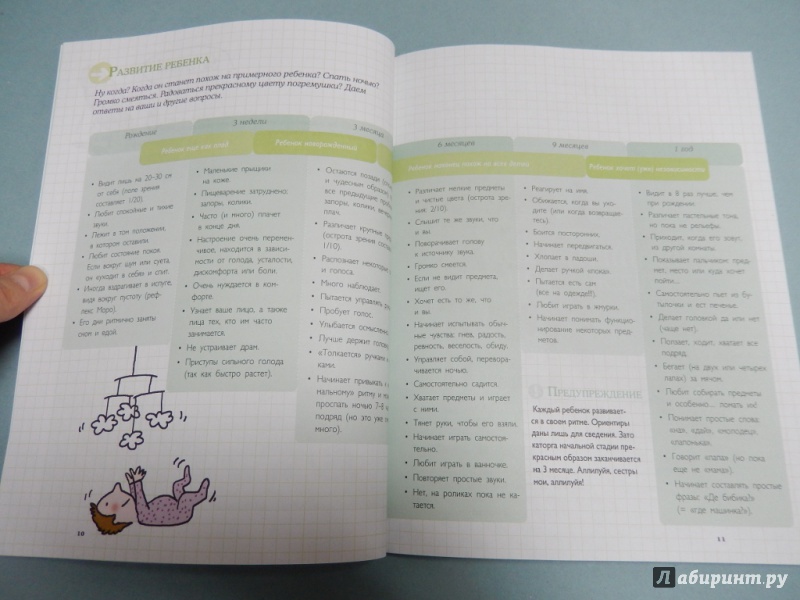 РАЗВИТИЕ РЕБЕНКА
Ну когда? Когда он станет похож на примерного ребенка? Спать ночью?
Громко смеяться. Радоваться прекрасному цвету погремушки? Даем
ответы на ваши и другие вопросы.
Рождение
• Видит лишь на 20-30 см
от себя (поле зрения
составляет 1/20).
• Любит спокойные и тихие
звуки.
• Лежит в том положении,
в котором оставили.
• Любит состояние покоя.
Если вокруг шум или суета,
он «уходит в себя» и спит.
• Иногда вздрагивает в испуге,
видя вокруг пустоту (реф-
лекс Моро).
• Его дни ритмично заняты
сном и едой.
3 недели
Ребенок еще как плод
• Маленькие прыщики
на коже.
• Пищеварение затруднено:
запоры, колики.
• Часто (и много) плачет
в конце дня.
• Настроение очень перемен-
чивое, находится в зависи-
мости от голода, усталости,
дискомфорта или боли.
• Очень нуждается в ком-
форте.
• Узнает ваше лицо, а также
лица тех, кто им часто
занимается.
• Не устраивает драм.
• Приступы сильного голода
(так как быстро растет).
3 месяца
Ребенок новорожденный
• Остаются позади (
и чудесным образом
все предыдущие
запоры, колики,
плач.
• Различает крупные
(острота зрения
1/10).
• Распознает некоторые
и голоса.
• Много наблюдает.
• Пытается управлять
• Пробует голос.
• Улыбается осмысленно.
• Лучше держит
• «Толкается» ручками
ками.
• Начинает привыкать к
мальному» ритму и
проспать ночью 7-8
подряд (но это уже
много).
10
6 месяцев
• Различает мелкие предметы
и чистые цвета (острота зре-
ния: 2/10).
• Слышит те же звуки, что
и вы.
• Поворачивает голову
к источнику звука.
• Громко смеется.
• Если не видит предмета,
ищет его.
• Хочет есть то же, что
и вы.
• Начинает испытывать обыч-
ные чувства: гнев, радость,
ревность, веселость, обиду.
• Управляет собой, перевора-
чивается ночью.
• Самостоятельно садится.
• Хватает предметы и играет
с ними.
• Тянет руки, чтобы его взяли.
• Начинает играть самостоя-
тельно.
• Любит играть в ванночке.
• Повторяет простые звуки.
• Нет, на роликах пока не ка-
тается.
9 месяцев
• Реагирует на имя.
• Обижается, когда вы ухо-
дите (или когда возвращае-
тесь).
• Боится посторонних.
• Начинает передвигаться.
• Хлопает в ладоши.
• Делает ручкой «пока».
• Пытается есть сам
(все на одежде!!!).
• Любит играть в жмурки.
• Начинает понимать функцио-
нирование некоторых пред-
метов.
ПРЕДУПРЕЖДЕНИЕ
Каждый ребенок развивает-
ся в своем ритме. Ориентиры
даны лишь для сведения. Зато
каторга начальной стадии пре-
красным образом заканчивается
на 3 месяце. Аллилуйя, сестры
мои, аллилуйя!
1 год
• Видит в 8 раз лучше, чем
при рождении.
• Различает пастельные тона,
но пока не рельефы.
• Приходит, когда его зовут,
из другой комнаты.
• Показывает пальчиком пред-
мет, место или куда хочет
пойти...
• Самостоятельно пьет из бу-
тылочки и ест печенье.
• Делает головкой да или нет
(чаще нет).
• Ползает, ходит, хватает все
подряд.
• Бегает (на двух или четырех
лапах) за мячом.
• Любит собирать предметы
и особенно... ломать их!
• Понимает простые слова:
«на», «дай», «молодец»,
«ладоньки».
• Говорит «папа» (но пока
еще не «мама»).
• Начинает составлять простые
фразы: «Де бибика?»
(= «где машинка?»).
11
Лабиринт.ру